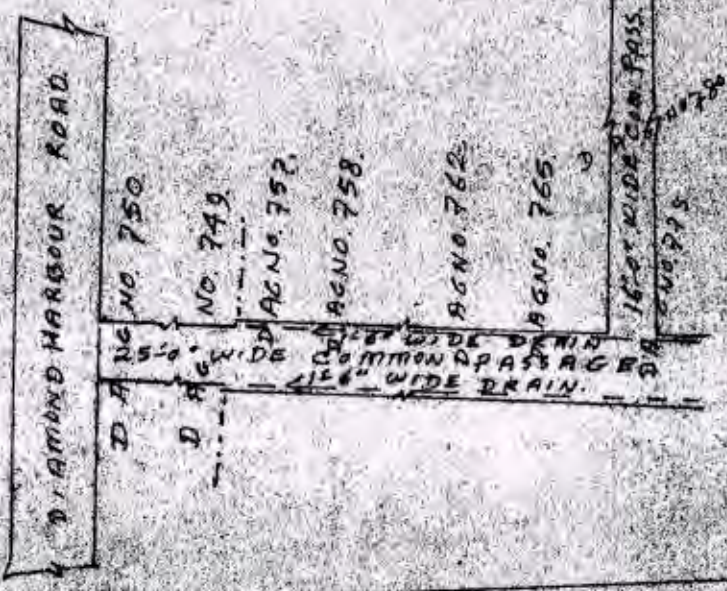 DIAMOND HARBOUR ROAD
DAG NO. 750.
DAG NO. 749.
DAGNO. 757.
DAGNO. 758.
DAGNO. 762.
DAGNO. 765.
16'-0" WIDE COM. PASS.
1'-6" WIDE DRAIN
25'-0" WIDE COMMON PASSAGE
1'-6" WIDE DRAIN.